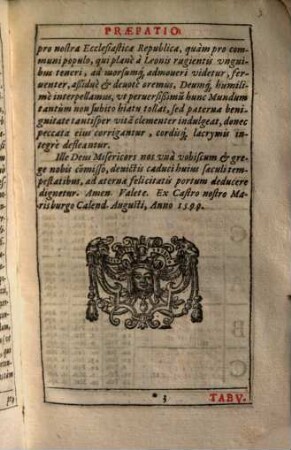 PRÆFATIO.
pro nostra Ecclesiastica Republica, quàm pro com-
muni populo, qui planè à Leonis rugientis vngui-
bus teneri, ad morsumq; admoueri videtur, fer-
uenter, assiduè & deuotè oremus, Deumq; humili-
mè interpellamus, vt peruersissimū hunc Mundum
tantùm non subito hiatu tollat, sed paterna beni-
gnitate tantisper vitā clementer indulgeat, donec
peccata eius corrigantur, cordisq; lacrymis in-
tegrè defleantur.
Ille Deus Misericors nos vnà vobiscum & gre-
ge nobis cōmisso, deuictis caduci huius sæculi tem-
pestatibus, ad æterna felicitatis portum deducere
dignetur. Amen. Valete. Ex Castro nostro Mar-
risburgo Calend. Augusti, Anno 1599.
* 3
TABV.